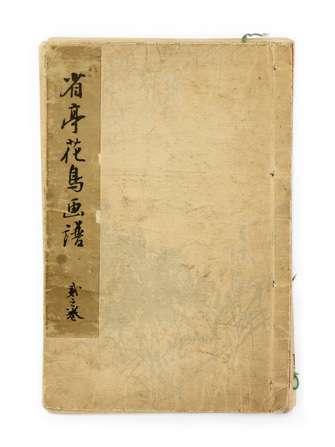 省亭花鳥画譜
貳之巻